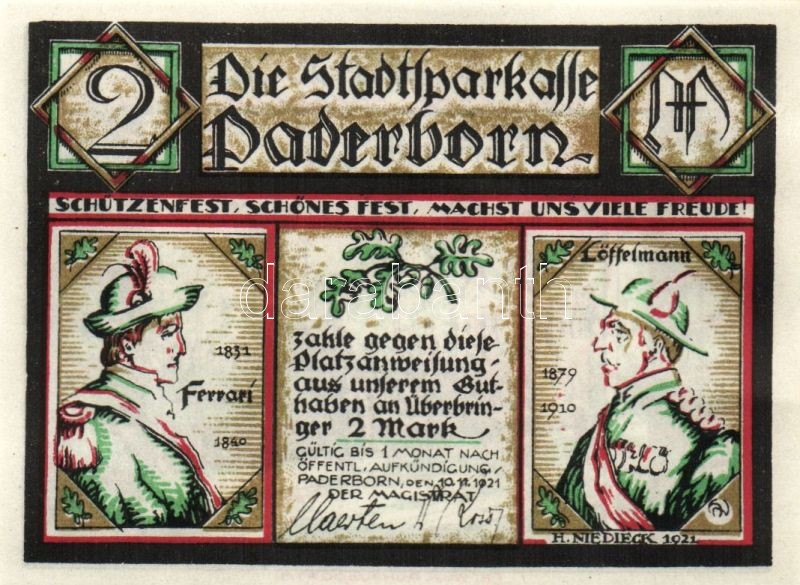 2
Die Stadtsparkasse
Paderborn
M
SCHÜTZENFEST, SCHÖNES FEST, MACHST UNS VIELE FREUDE!
1831
Ferrari
1840
zahle gegen diese
Platzanweisung
aus unserem Gut-
haben an Überbrin-
ger 2 Mark
GÜLTIG BIS 1 MONAT NACH
ÖFFENTL. AUFKÜNDIGUNG,
PADERBORN, DEN 10.11.1921
DER MAGISTRAT
Löffelmann
1879
1910
H. NIEDIECK 1921
darabanth